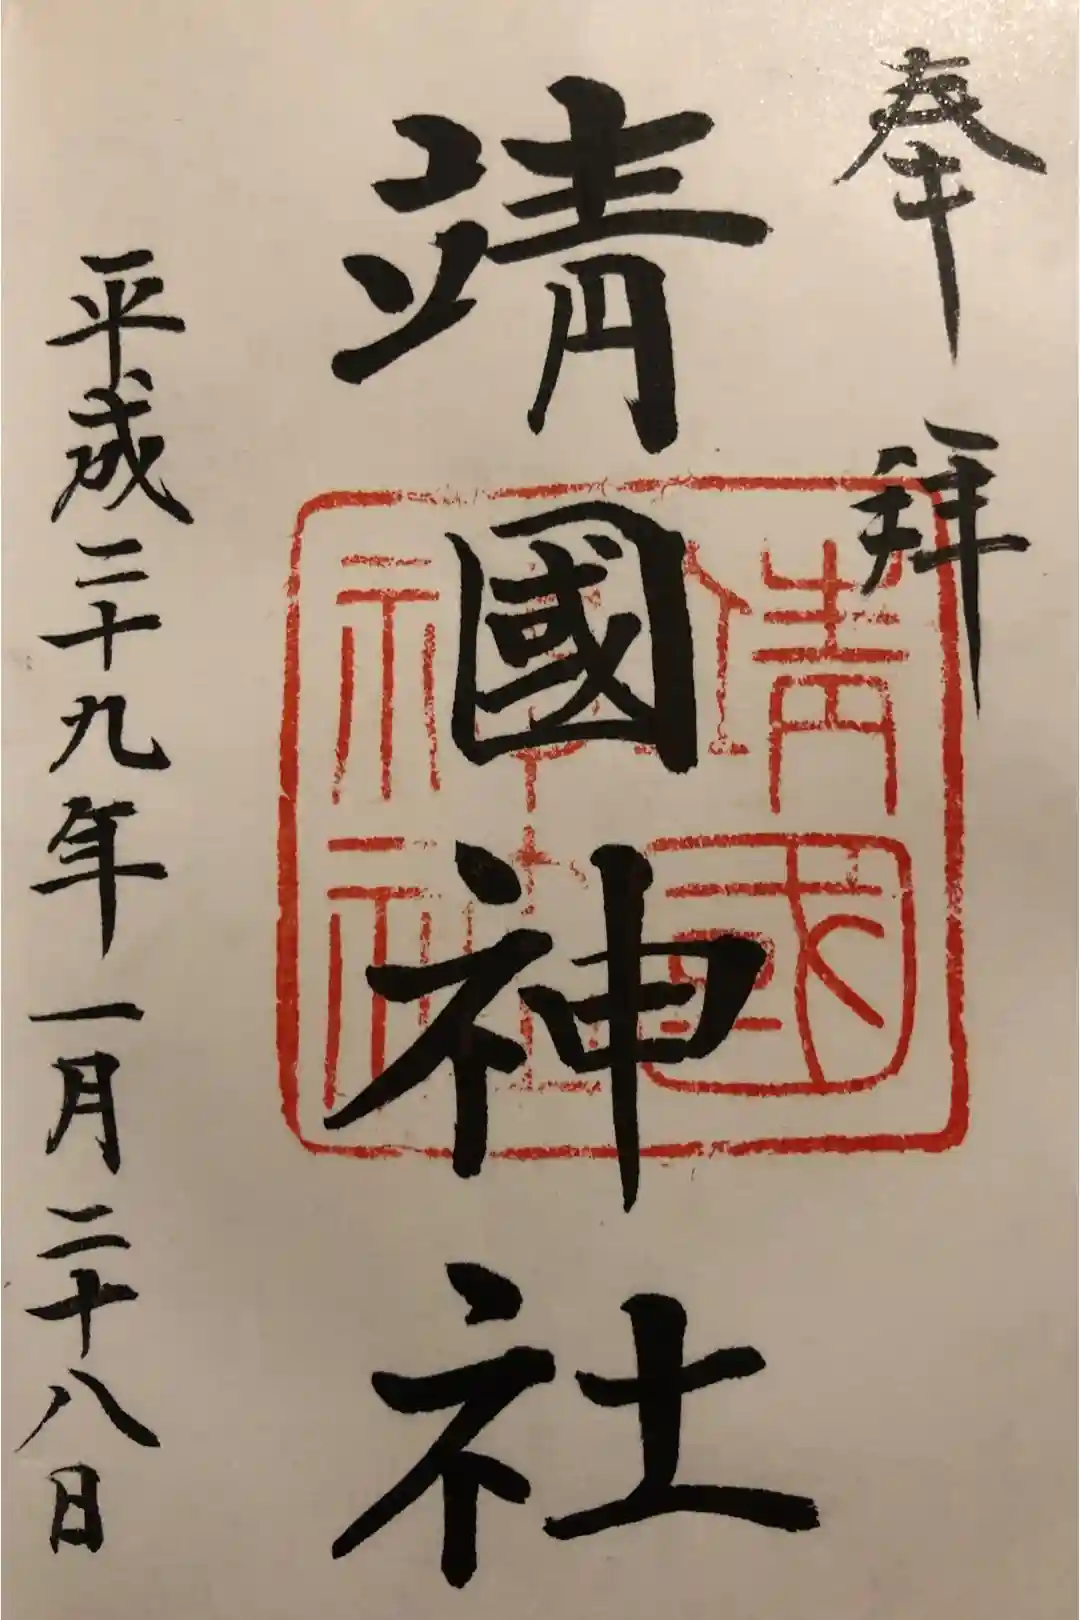 奉拜
靖國神社
靖國
神社
平成二十九年一月二十八日